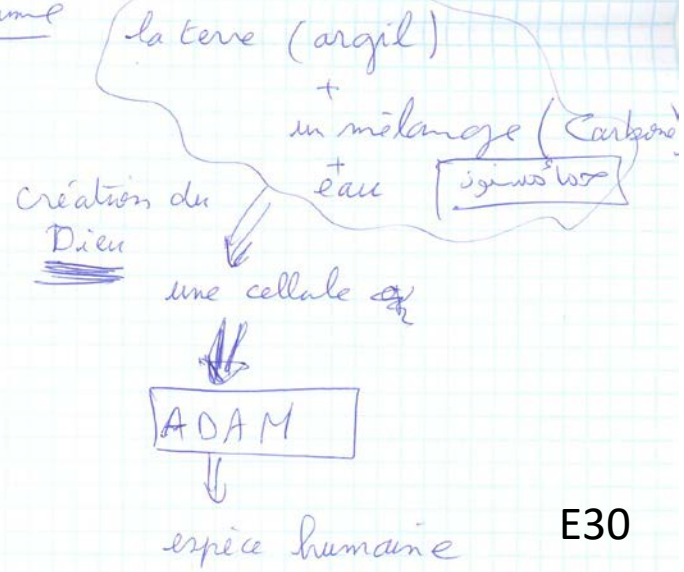 la terre (argil)
+
un mélange (Carbone)
+
eau حمأ مسنون
création du
Dieu
une cellule
ADAM
espèce humaine
E30